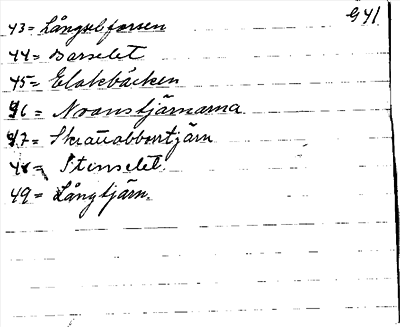 941
43 = Långselforsen
44 = Barselet
45 = Elakbäcken
46 = Noanstjärnarna
47 = Skräuabborrtjärn
48 = Stenselet.
49 = Långtjärn.